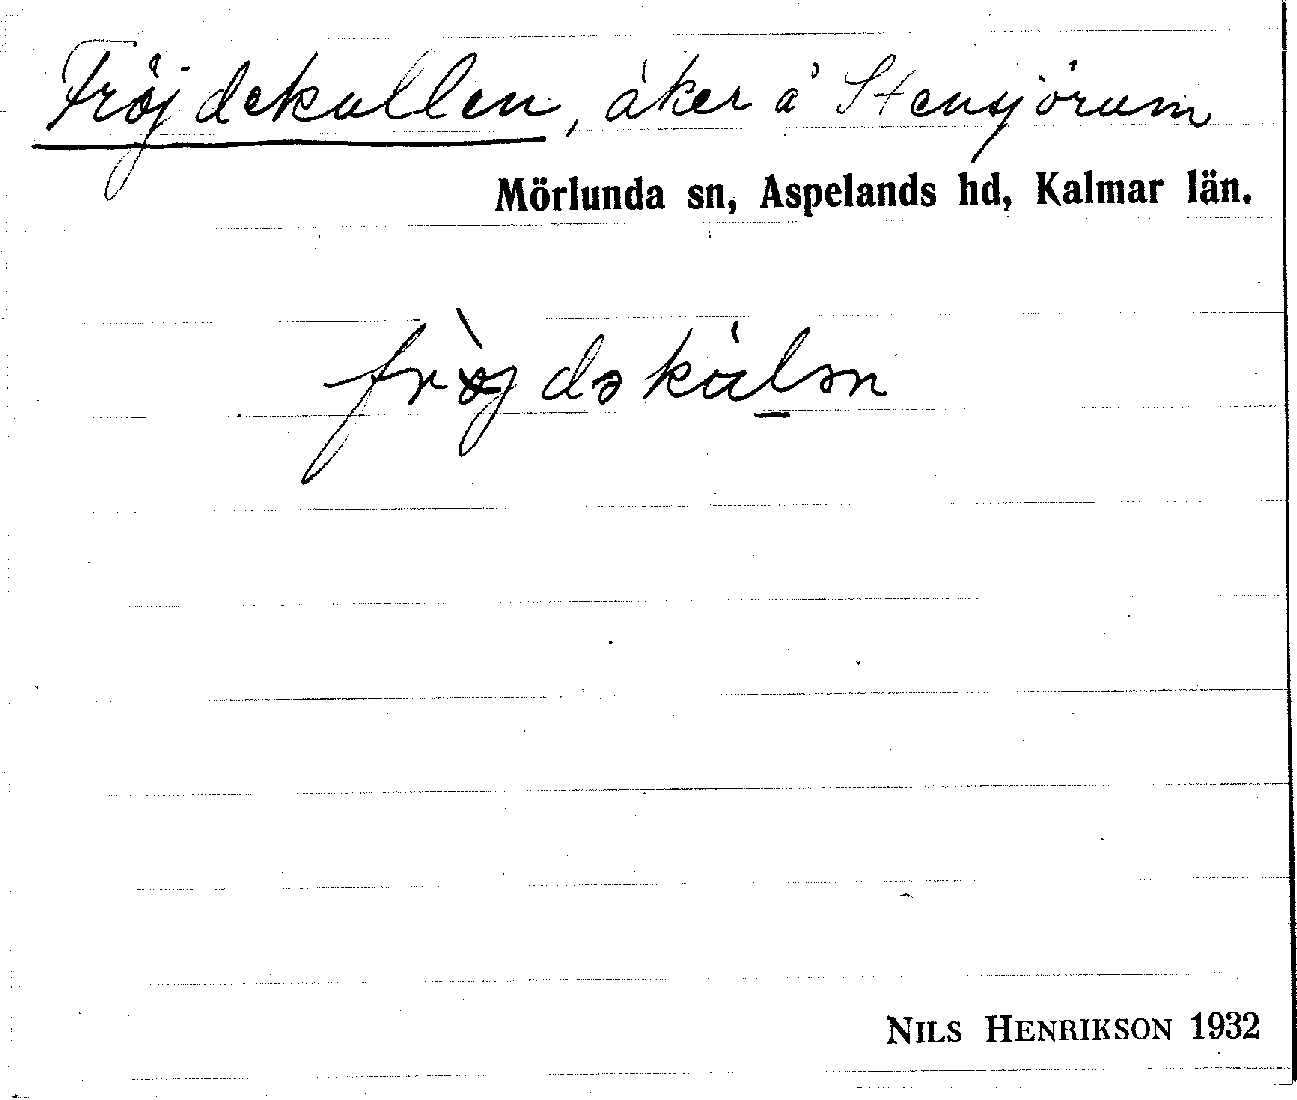 Fröjdekullen, åker å Stensjörum
Mörlunda sn, Aspelands hd, Kalmar län.
NILS HENRIKSON 1932